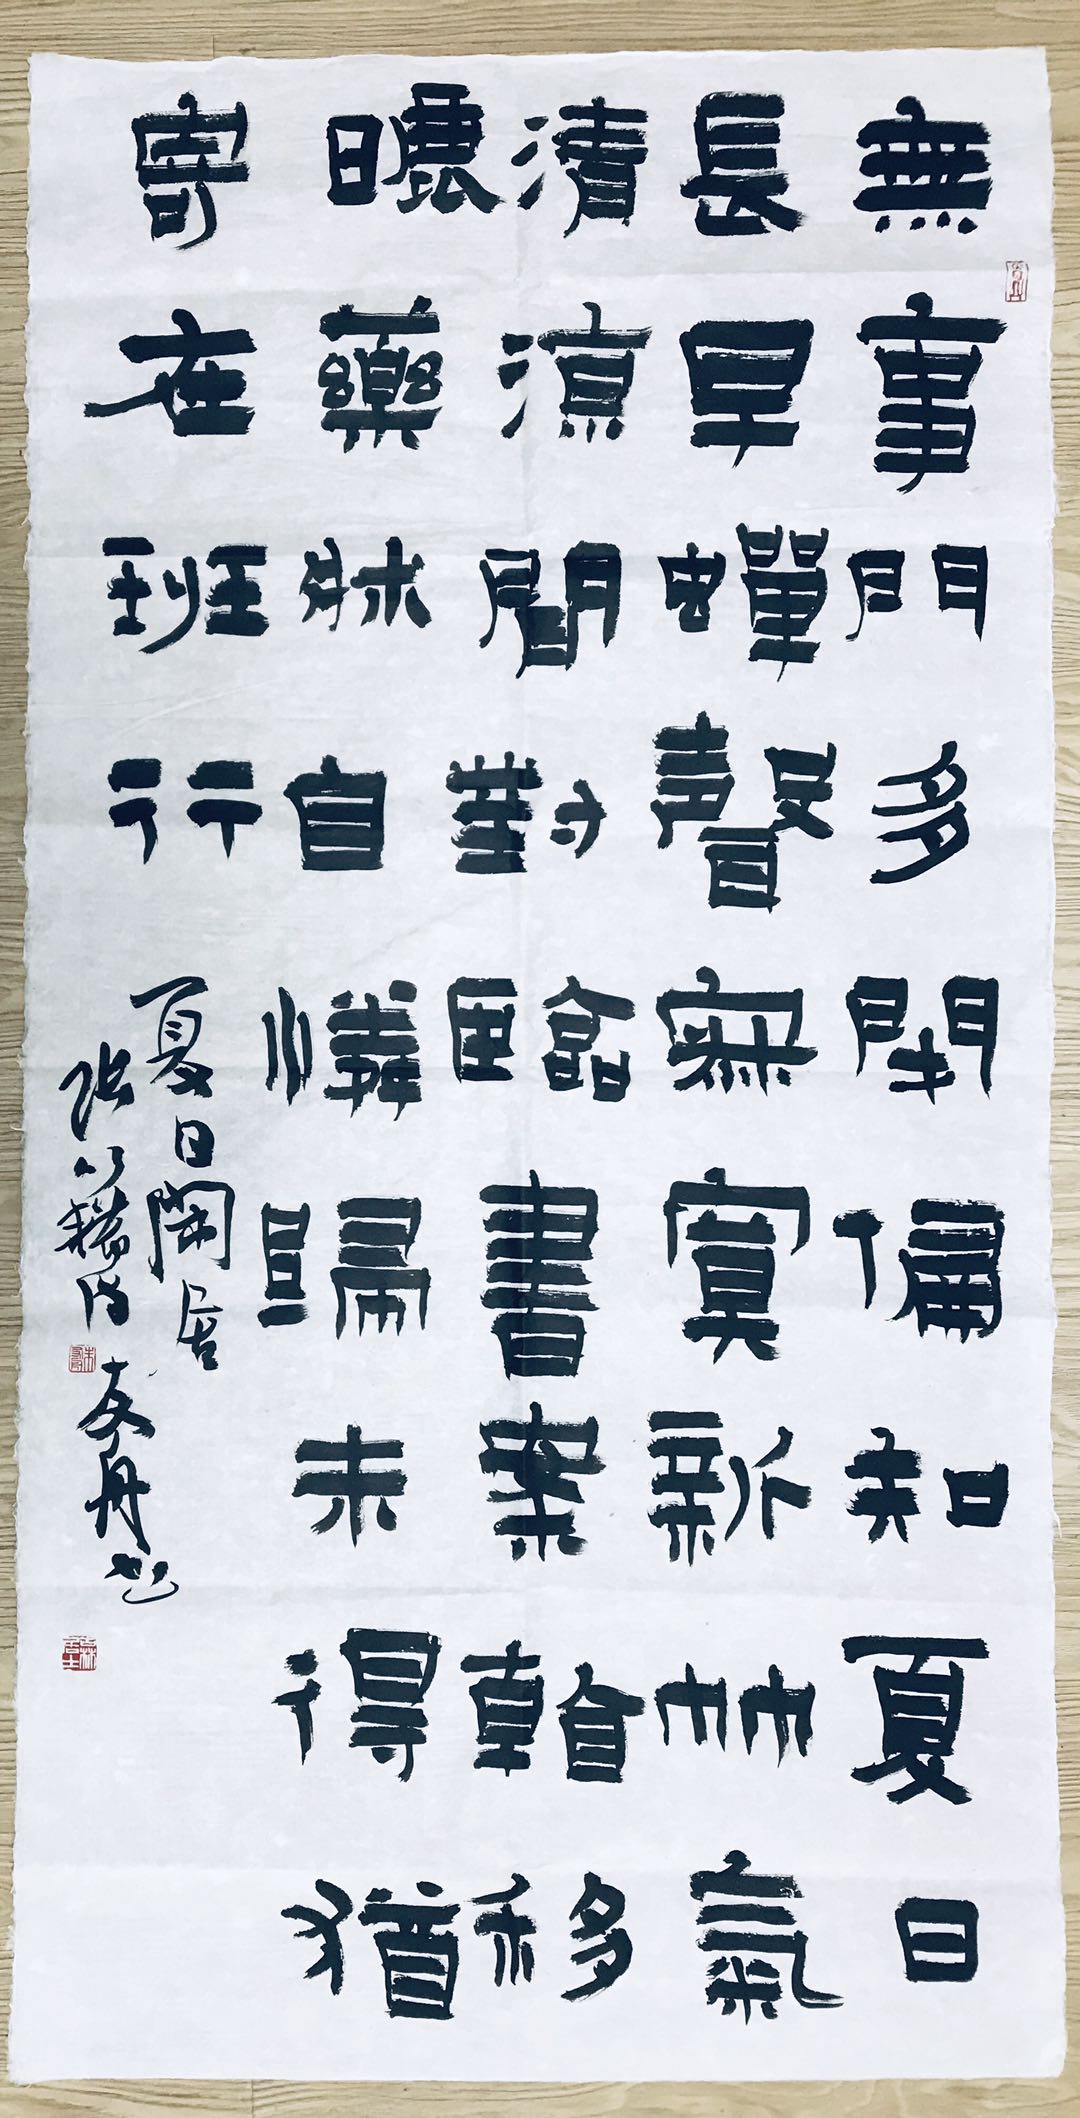 無事門多閉偏知夏日
長早蟬聲寂寞新竹氣
清涼閒對臨書案看移
曬藥牀自憐歸未得猶
寄在班行
夏日閑居
張籍詩 友舟书